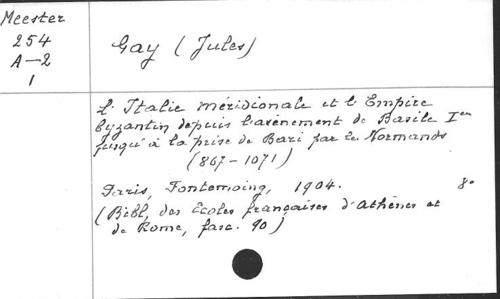 Meester
254
A-2
1
Gay (Jules)
L'Italie méridionale et l'Empire
byzantin depuis l'avènement de Basile Ier
jusqu'à la prise de Bari par les Normands
(867-1071)
Paris, Fontemoing, 1904. 8°
(Bibl. des Ecoles françaises d'Athènes et
de Rome, fasc. 90)